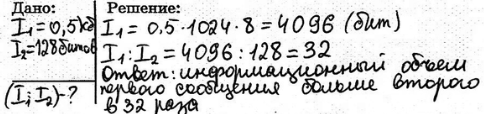 Дано:
I₁=0,5кб
I₂=128битов
(I₁:I₂)-?
Решение:
I₁ = 0.5·1024·8=4096 (бит)
I₁:I₂=4096:128=32
Ответ: информационный объем
первого сообщения больше второго
в 32 раза